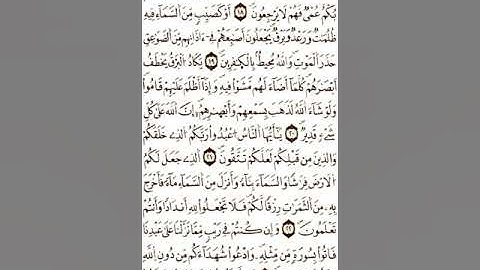 بُكْمٌ عُمْيٞ فَهُمْ لَا يَرْجِعُونَ ١٨ أَوْ كَصَيِّبٖ مِّنَ اَ۬لسَّمَآءِ فِيهِ
ظُلُمَٰتٞ وَرَعْدٞ وَبَرْقٞ يَجْعَلُونَ أَصَٰبِعَهُمْ فِےٓ ءَاذَانِهِم مِّنَ اَ۬لصَّوَٰعِقِ
حَذَرَ اَ۬لْمَوْتِ وَاللَّهُ مُحِيطُۢ بِالْكٰ۪فِرِينَ ١٩ يَكَادُ اُ۬لْبَرْقُ يَخْطَفُ
أَبْصَٰرَهُمْ كُلَّمَآ أَضَآءَ لَهُم مَّشَوْاْ فِيهِ وَإِذَآ أَظْلَمَ عَلَيْهِمْ قَامُواْ
وَلَوْ شَآءَ اَ۬للَّهُ لَذَهَبَ بِسَمْعِهِمْ وَأَبْصٰ۪رِهِمْ إِنَّ اَ۬للَّهَ عَلَىٰ كُلِّ
شَےْءٖ قَدِيرٞ ٢٠ يَٰٓأَيُّهَا اَ۬لنَّاسُ اُ۟عْبُدُواْ رَبَّكُمُ اُ۬لذِے خَلَقَكُمْ
وَالذِينَ مِن قَبْلِكُمْ لَعَلَّكُمْ تَتَّقُونَ ٢١ اَ۬لذِے جَعَلَ لَكُمُ
اُ۬لَارْضَ فِرَٰشاٗ وَالسَّمَآءَ بِنَآءٗ وَأَنزَلَ مِنَ اَ۬لسَّمَآءِ مَآءٗ فَأَخْرَجَ
بِهِۦ مِنَ اَ۬لثَّمَرَٰتِ رِزْقاٗ لَّكُمْ فَلَا تَجْعَلُواْ لِلهِ أَندَاداٗ وَأَنتُمْ
تَعْلَمُونَ ٢٢ وَإِن كُنتُمْ فِے رَيْبٖ مِّمَّا نَزَّلْنَا عَلَىٰ عَبْدِنَا
فَاتُواْ بِسُورَةٖ مِّن مِّثْلِهِۦ وَادْعُواْ شُهَدَآءَكُم مِّن دُونِ اِ۬للَّهِ